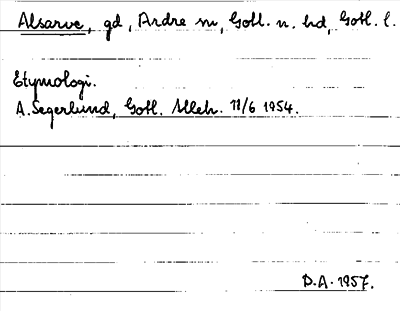 Alsarve, gd, Ardre sn, Gotl. n. hd, Gotl. l.
Etymologi.
A. Segerlund, Gotl. Alleh. 11/6 1954.
D.A. 1957.